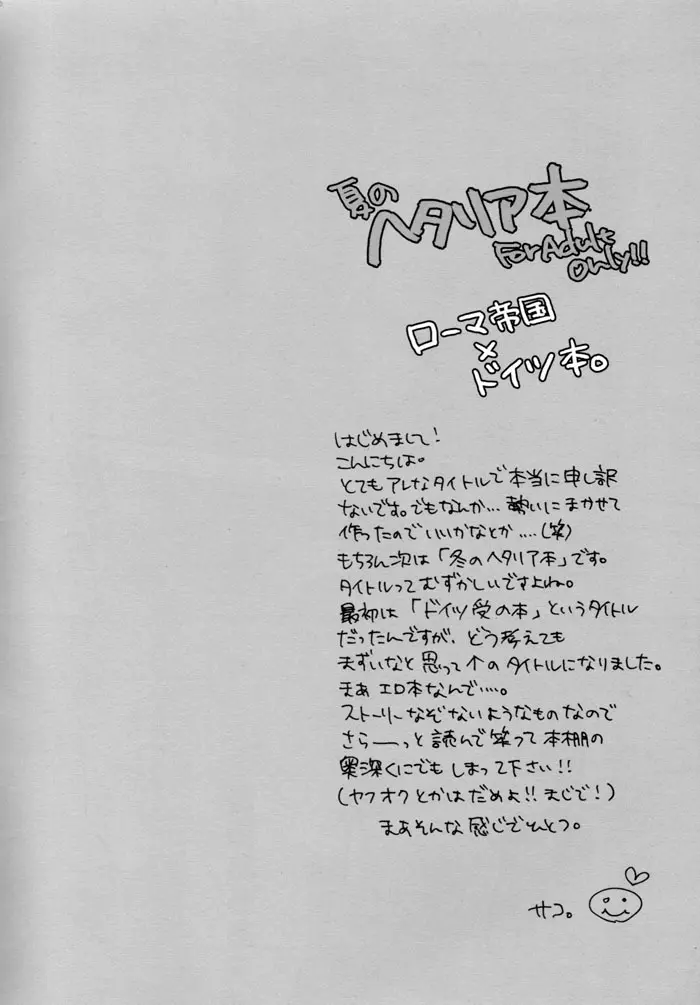 夏の
ヘタリア本
For Adult
Only!!
ローマ帝国
×
ドイツ本。
はじめまして!
こんにちは。
とてもアレなタイトルで本当に申し訳
ないです。でもなんか…勢いにまかせて
作ったのでいいかなとか….(笑)
もちろん次は「冬のヘタリア本」です。
タイトルってむずかしいですよね。
最初は「ドイツ受の本」というタイトル
だったんですが、どう考えても
まずいなと思って↑のタイトルになりました。
まぁエロ本なんで….。
ストーリーなぞないようなものなので
さらーーっと読んで笑って本棚の
奥深くにでもしまって下さい!!
(ヤフオクとかはだめよ!!まじで!)
まぁそんな感じでひとつ。
サコ。